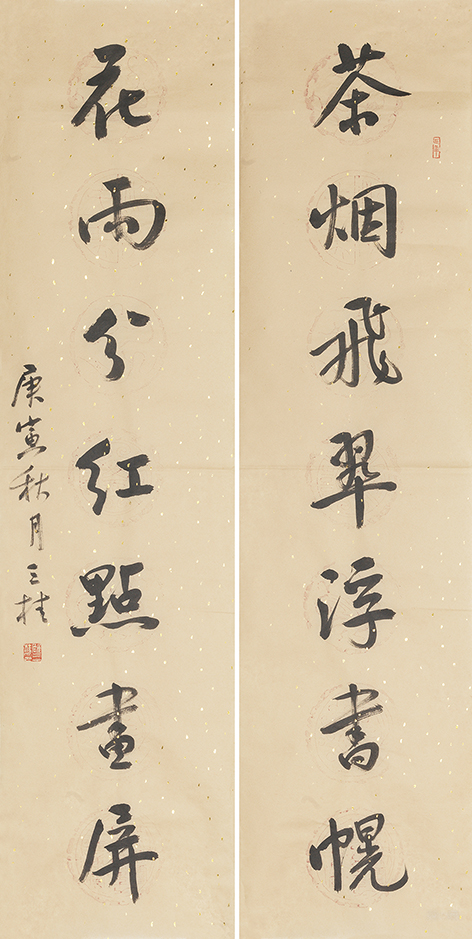 茶烟飛翠浮書幌
花雨分紅點畫屏
庚寅秋月三桂